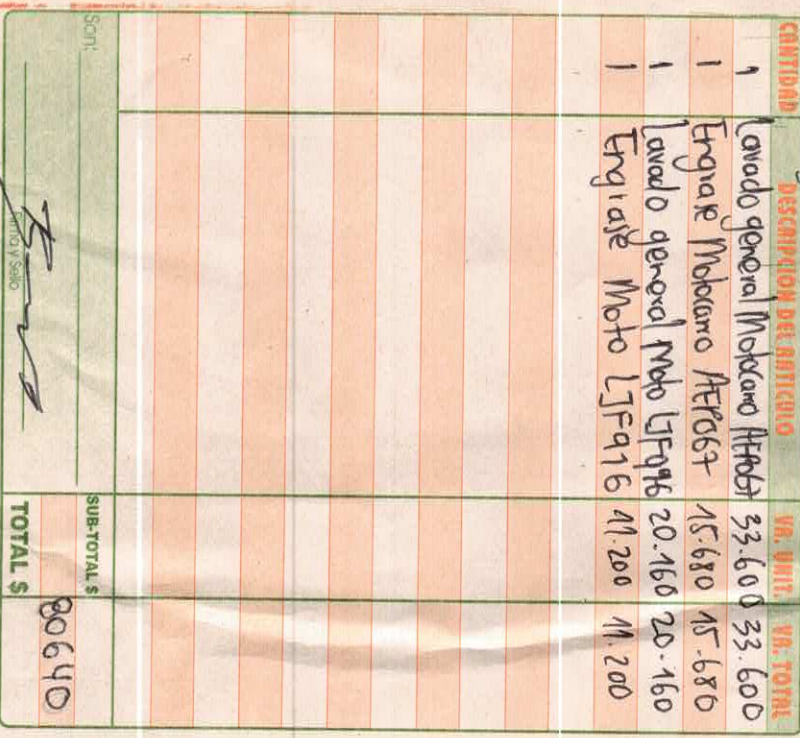 CANTIDAD DESCRIPCION DEL ARTICULO VR. UNIT. VR. TOTAL
1 Lavado general Motocarro AEP067 33.600 33.600
1 Engrase Motocarro AEP067 15.680 15.680
1 Lavado general Moto LJF096 20.160 20.160
1 Engrase Moto LJF916 11.200 11.200
Son:
SUB-TOTAL $
Firma y Sello
TOTAL $ 80640